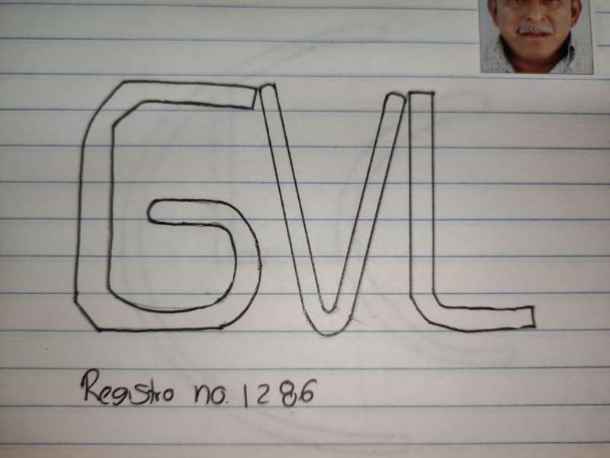 GVL
Registro no. 1286